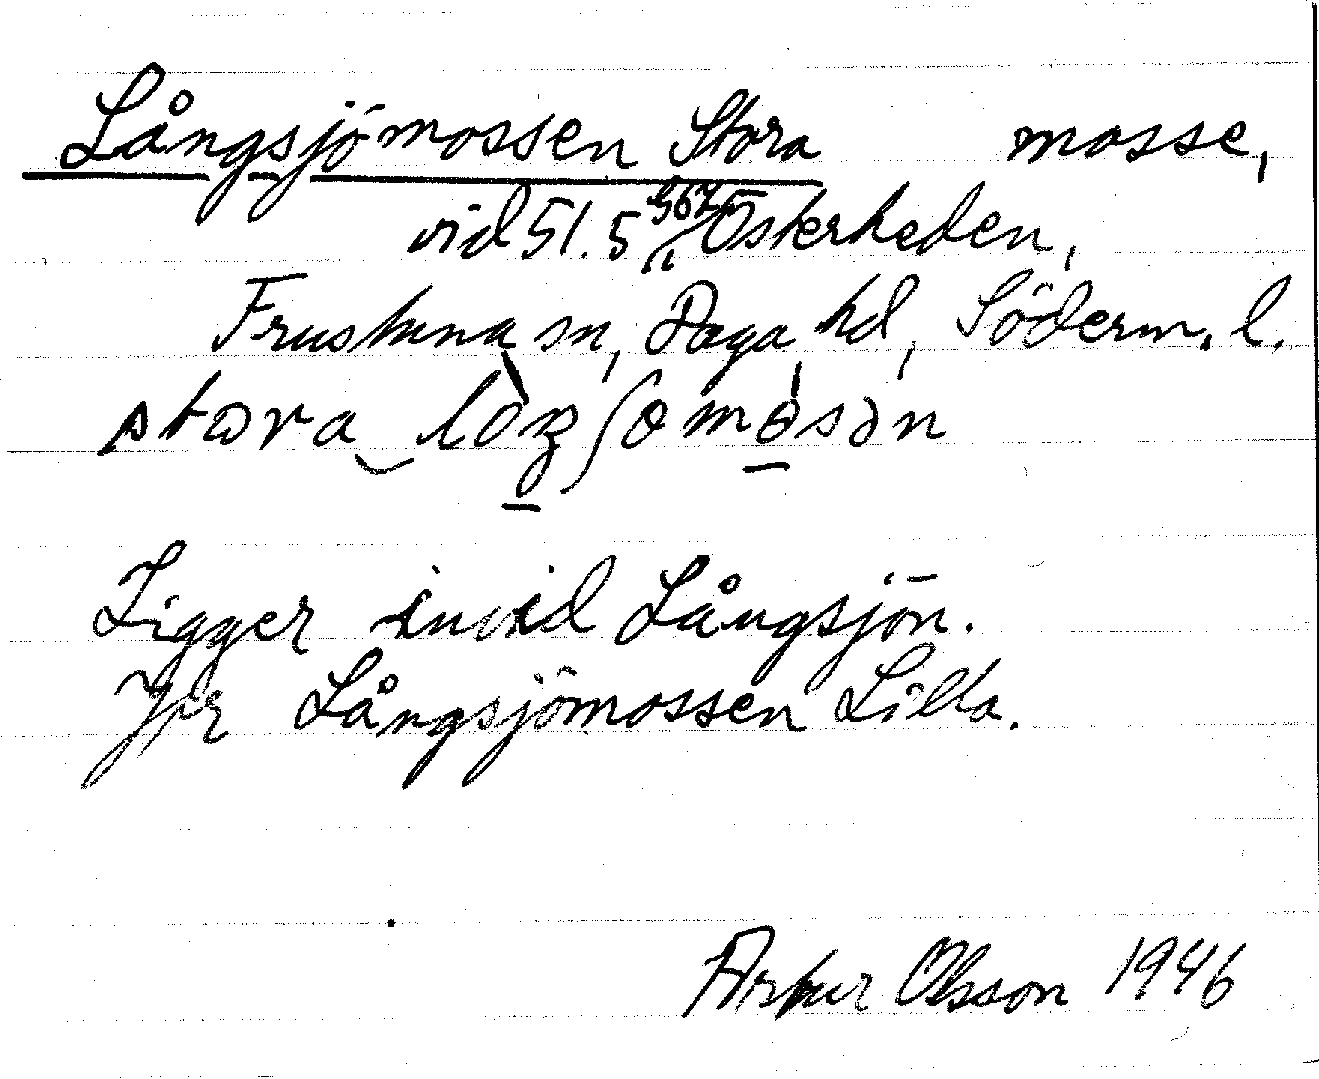 Långsjömossen Stora mosse,
vid 51.5 567/11 Österheden,
Frustuna sn, Daga hd, Söderm. l.
stora
Ligger invid Långsjön.
Jfr Långsjömossen Lilla.
Artur Olsson 1946